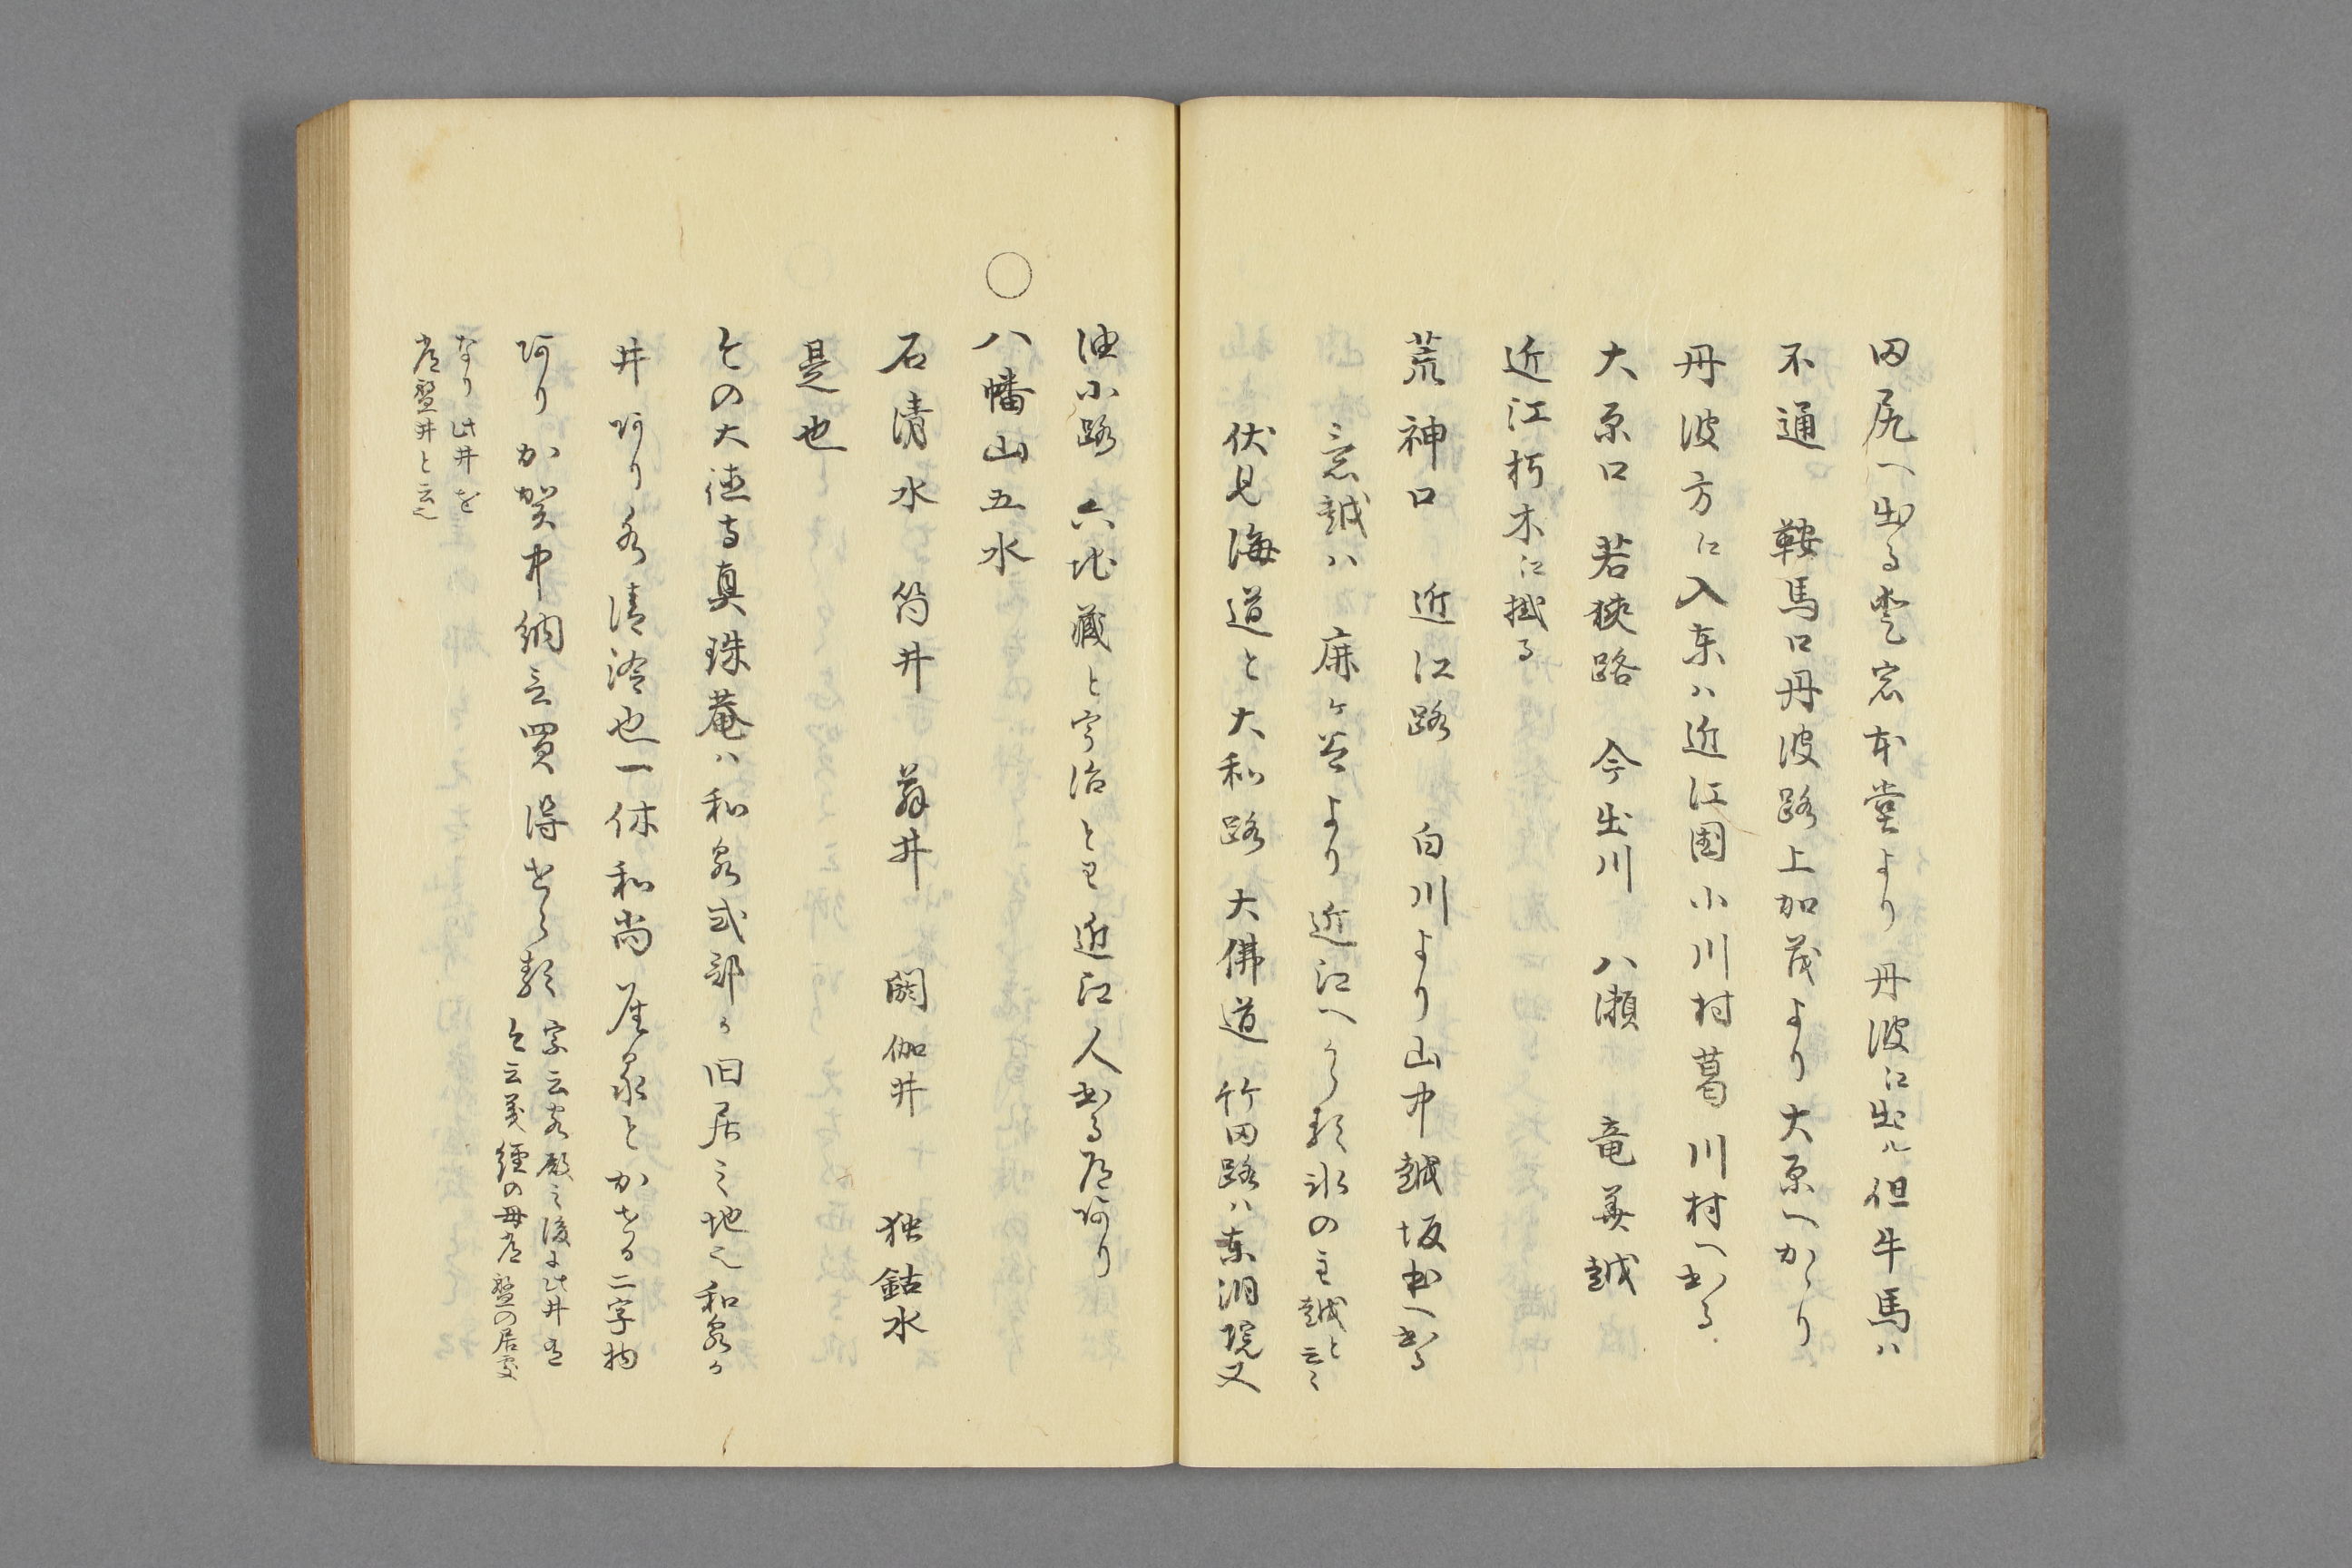 田尻へ出る雲ヶ窓本堂より丹波江出ル但牛馬ハ
不通　鞍馬口丹波路上加茂より大原へかゝり
丹波方江入東ハ近江国小川村葛川村へ出る
大原口　若狭路　今出川　八瀬　竜華越
近江朽木江掛る
荒神口　近江路　白川より山中越坂本へ出る
意越ハ　鹿ヶ谷より　近江へ
伏見海道と大和路　大佛道　竹田路ハ東洞院又
油小路　六地蔵と宇治と　近江人出る道あり
○八幡山五水
石清水　筒井　藤井　閼伽井　独鈷水
是也
との大徳寺真珠菴ハ和泉式部か旧居之地也和泉か
井あり水清冷也一休和尚　座泉とかける二字物
あり　加賀中納言買得せらる
宗云客殿之後に此井有
と云義經の母常盤の居处
なり此井を
常盤井と云也